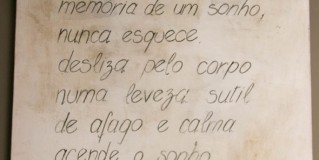 memória de um sonho,
nunca esquece.
desliza pelo corpo
numa leveza sutil
de afago e calma
acende o sonho